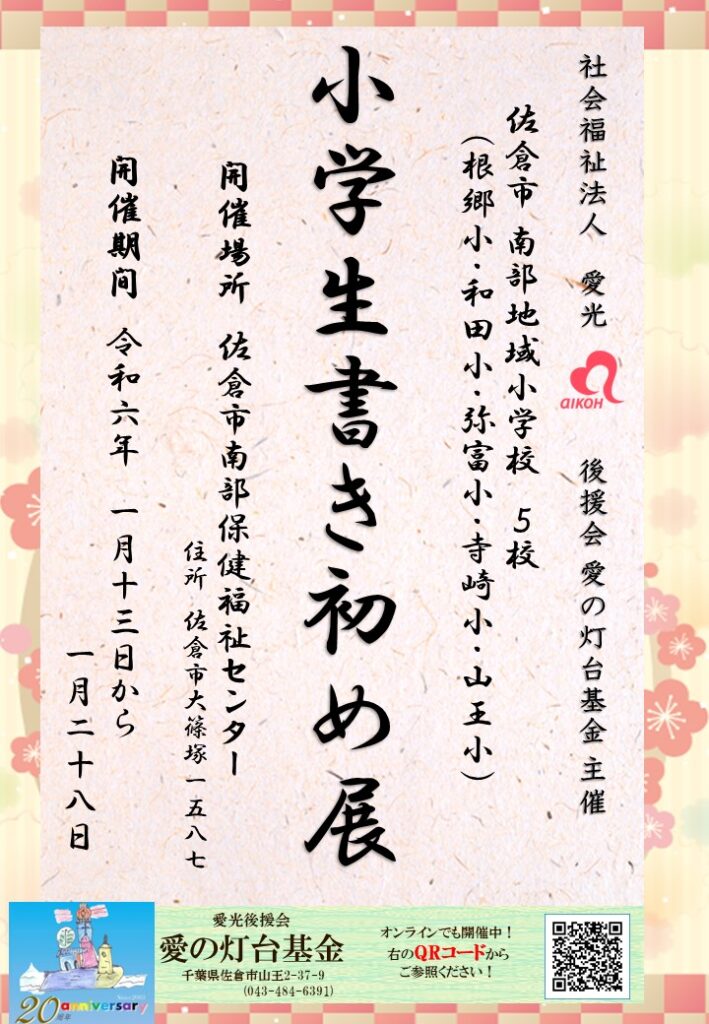 社会福祉法人 愛光
aIKOH
後援会 愛の灯台基金 主催
佐倉市 南部地域小学校 5校
（根郷小・和田小・弥富小・寺崎小・山王小）
小学生書き初め展
開催場所 佐倉市南部保健福祉センター
住所 佐倉市大篠塚一五八七
開催期间 令和六年 一月十三日から
一月二十八日
20周年 anniversary
愛光後援会
愛の灯台基金
千葉県佐倉市山王2-37-9
(043-484-6391)
オンラインでも開催中！
右のQRコードから
ご参照ください！